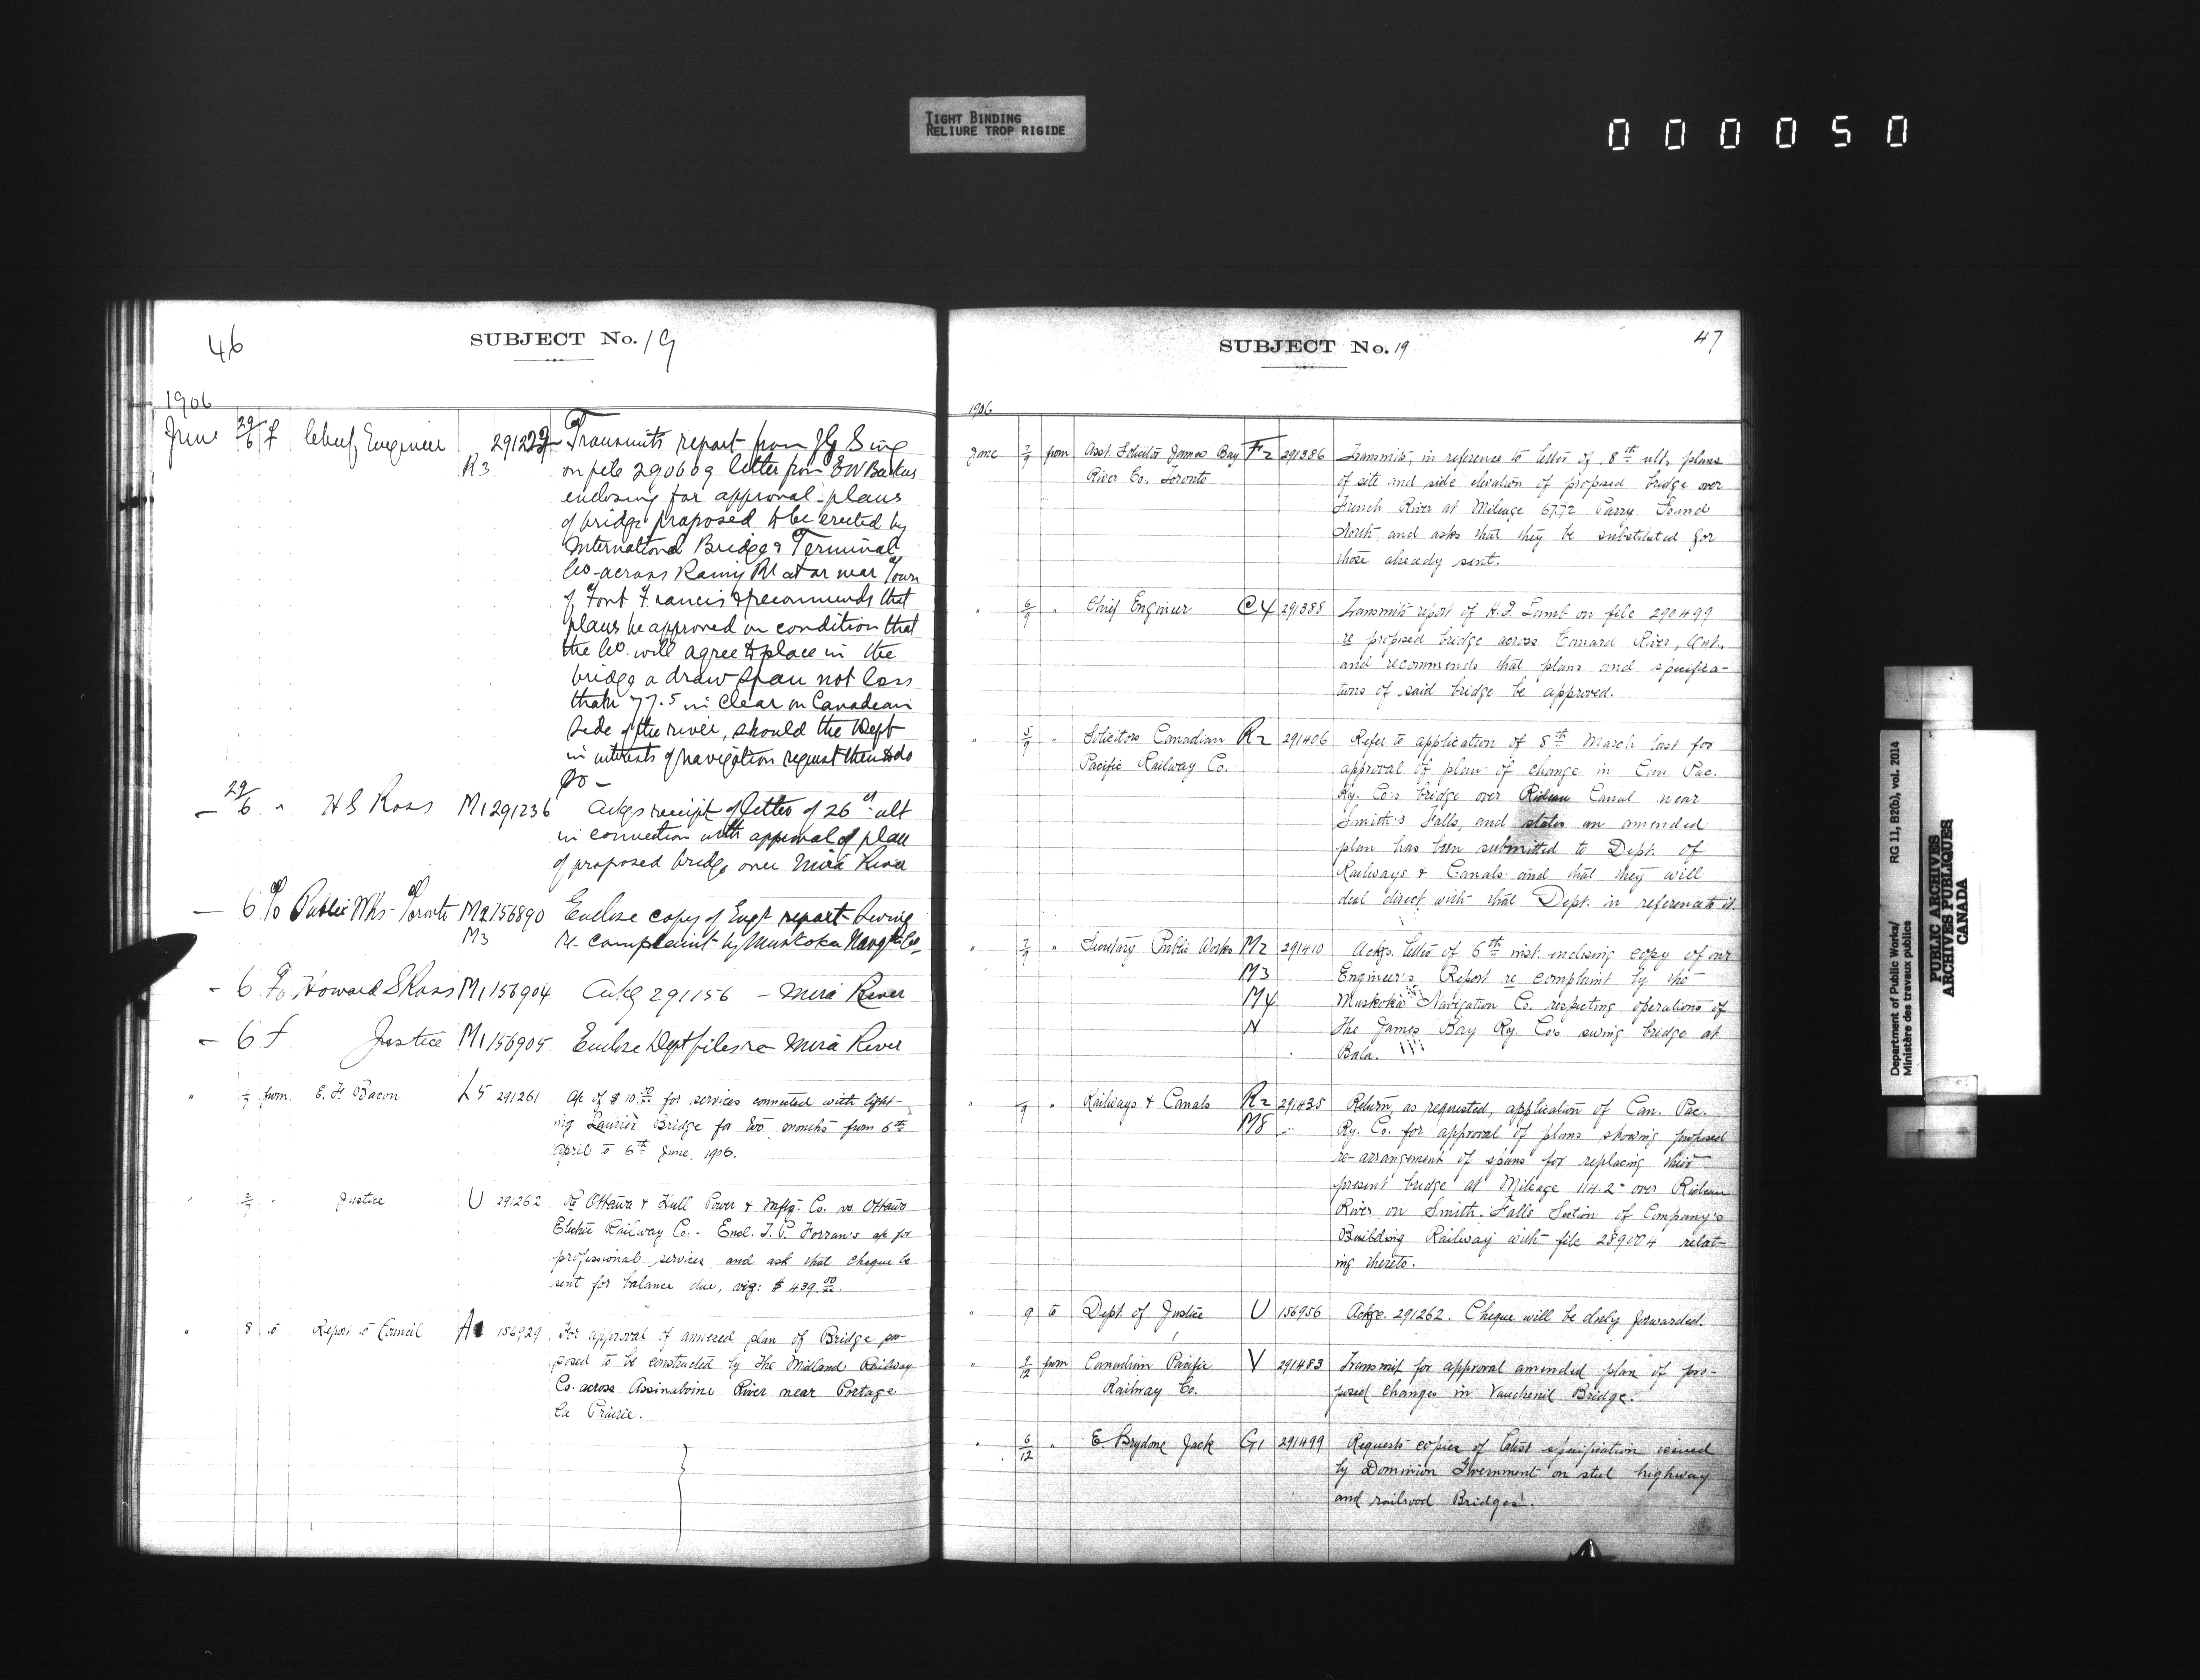 TIGHT BINDING
RELIURE TROP RIGIDE
000050
46
SUBJECT No. 19
1906
June 29/6 f Chief Engineer R3 Transmits report from J G Sing
on file 290609 letter from E W Backus
enclosing for approval plans
of bridge proposed to be erected by
International Bridge & Terminal
Co across Rainy R at or near Town
of Fort Francis & recommends that
plans be approved on condition that
the Co. will agree to place in the
bridge a draw span not less
than 77.5 in clear on Canadian
side of the river, should the Dept
in interests of navigation request them to do
so -
29/6 " H S Ross M1 291236 Ackgs receipt of letter of 26th ult
in connection with approval of plan
of proposed bridge over Mira River
6 To Public Wks - Toronto M2 156890 Enclose copy of Engr report
M3 re complaint by Muskoka Navgtn Co
6 To Howard S Ross M1 156904 Ackg 291156 - Mira River
6 f Justice M1 156905 Enclose Dept files re Mira River
" from E. H. Bacon L5 291261 a/c of $10.00 for services connected with light-
ing Laurier Bridge for two months from 6th
April to 6th June, 1906.
" " Justice U 291262 Re Ottawa & Hull Power & Mftg. Co. vs. Ottawa
Electric Railway Co. - Encl. T. P. Forran's a/c for
professional services and ask that cheque be
sent for balance due, viz: $439.00.
" 8 to Report to Council 156929 For approval of amended plan of Bridge pro-
posed to be constructed by The Midland Railway
Co. across Assinaboine River near Portage
la Prairie.
47
SUBJECT No. 19
1906
June from Asst. Solicitor James Bay F2 291386 Transmits, in reference to letter of 8th ult., plans
River Co. Toronto of site and side elevation of proposed bridge over
French River at Mileage 67.72 Parry Sound
North, and asks that they be substituted for
those already sent.
" 6/9 " Chief Engineer C4 291388 Transmits report of H. J. Lamb on file 290499
re proposed bridge across Canard River, Ont.,
and recommends that plans and specifica-
tions of said bridge be approved.
" 5/9 " Solicitors Canadian R2 291406 Refer to application of 8th March last for
Pacific Railway Co. approval of plan of change in Can. Pac.
Ry. Co's bridge over Rideau Canal near
Smith's Falls, and states an amended
plan has been submitted to Dept. of
Railways & Canals and that they will
deal direct with that Dept. in reference to it.
" 7/9 " Secretary Public Works M2 291410 Ackgs. letter of 6th inst. enclosing copy of our
M3 Engineer's Report re complaint by the
M4 Muskoka Navigation Co. respecting operations of
N The James Bay Ry. Co's swing bridge at
Bala.
" " Railways & Canals R2 291435 Return, as requested, application of Can. Pac.
M8 Ry. Co. for approval of plans showing proposed
re-arrangement of spans for replacing their
present bridge at Mileage 114.2 over Rideau
River on Smith Falls Section of Company's
Railway with file 289004 relat-
ing thereto.
" 9 to Dept. of Justice U 156956 Ackge. 291262. Cheque will be duly forwarded.
" 9/12 from Canadian Pacific V 291483 Transmit for approval amended plan of pro-
Railway Co. posed changes in Vaudreuil Bridge.
" 6/12 " E Brydone Jack G1 291499 Requests copies of latest specification issued
by Dominion Government on steel highway
and railroad Bridges.
Department of Public Works/ RG 11, B2(b), vol. 2014
Ministère des travaux publics
PUBLIC ARCHIVES
ARCHIVES PUBLIQUES
CANADA